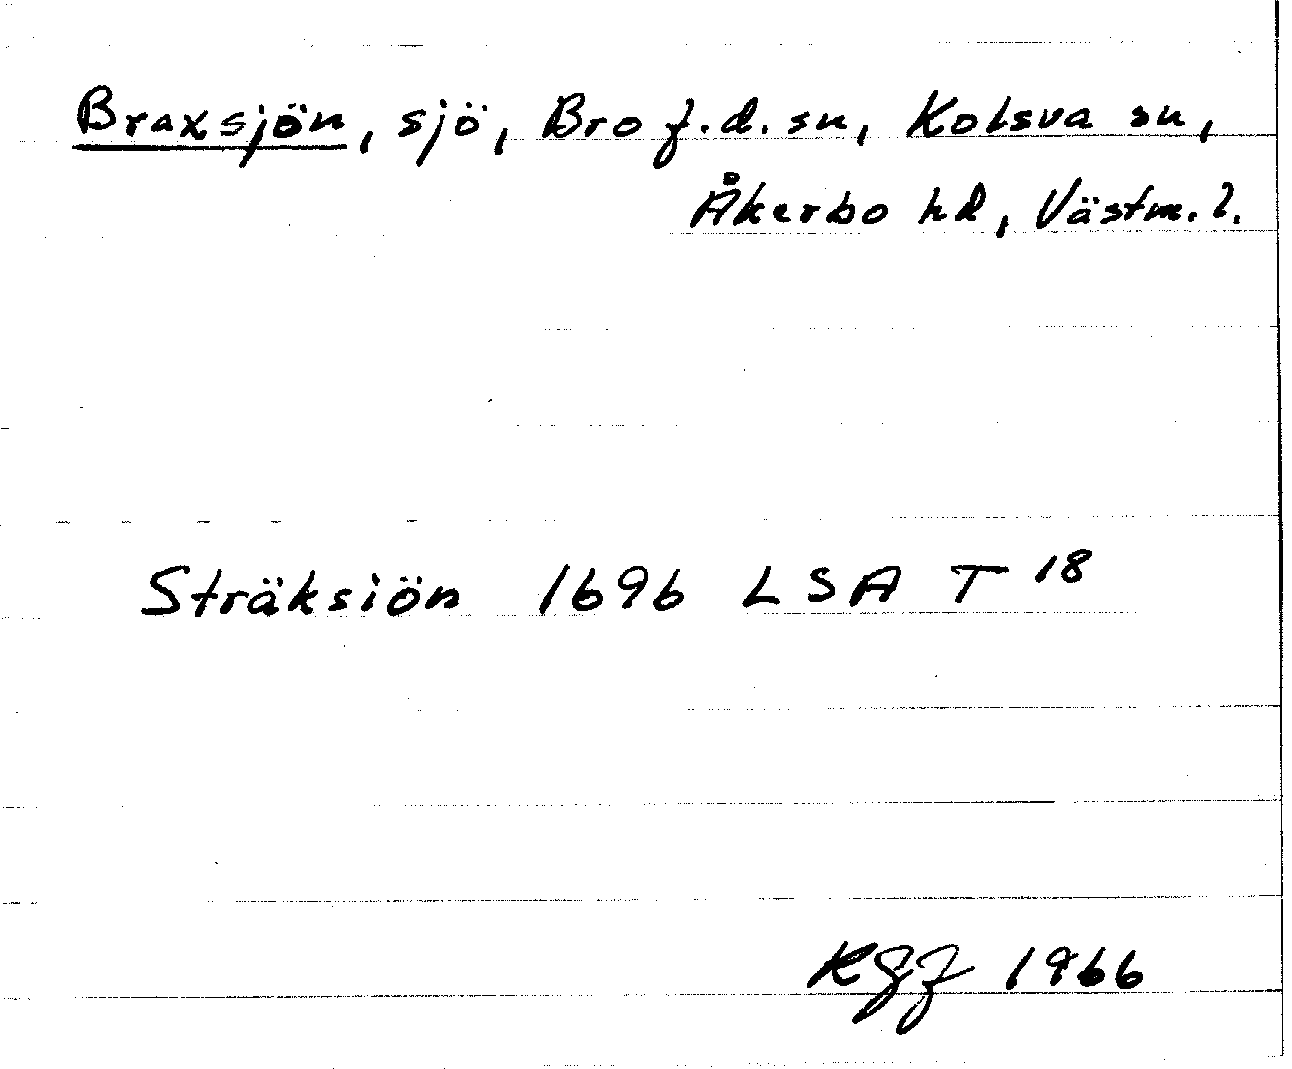 Braxsjön, sjö, Bro f.d. sn, Kolsva sn,
Åkerbo hd, Västm. l.
Sträksiön 1696 LSA T 18
1966